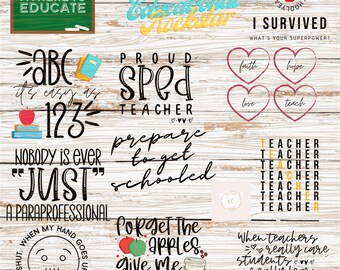 EDUCATE
Educational
Rockstar
I SURVIVED
WHAT'S YOUR SUPERPOWER?
ABC
it's easy as
123
PROUD
sped
TEACHER
faith
hope
love
teach
NOBODY IS EVER
"JUST"
A PARAPROFESSIONAL
prepare
to get
schooled
TEACHER
TEACHER
TEACHER
TEACHER
TEACHER
TEACHER
TEACHER
WHEN MY HAND GOES
forget the
apples
give me
When teachers
really care
students